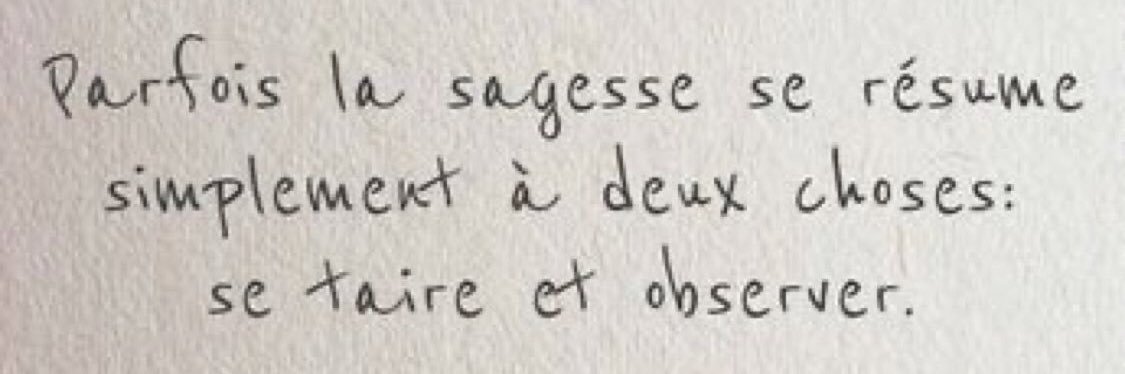 Parfois la sagesse se résume
simplement à deux choses:
se taire et observer.